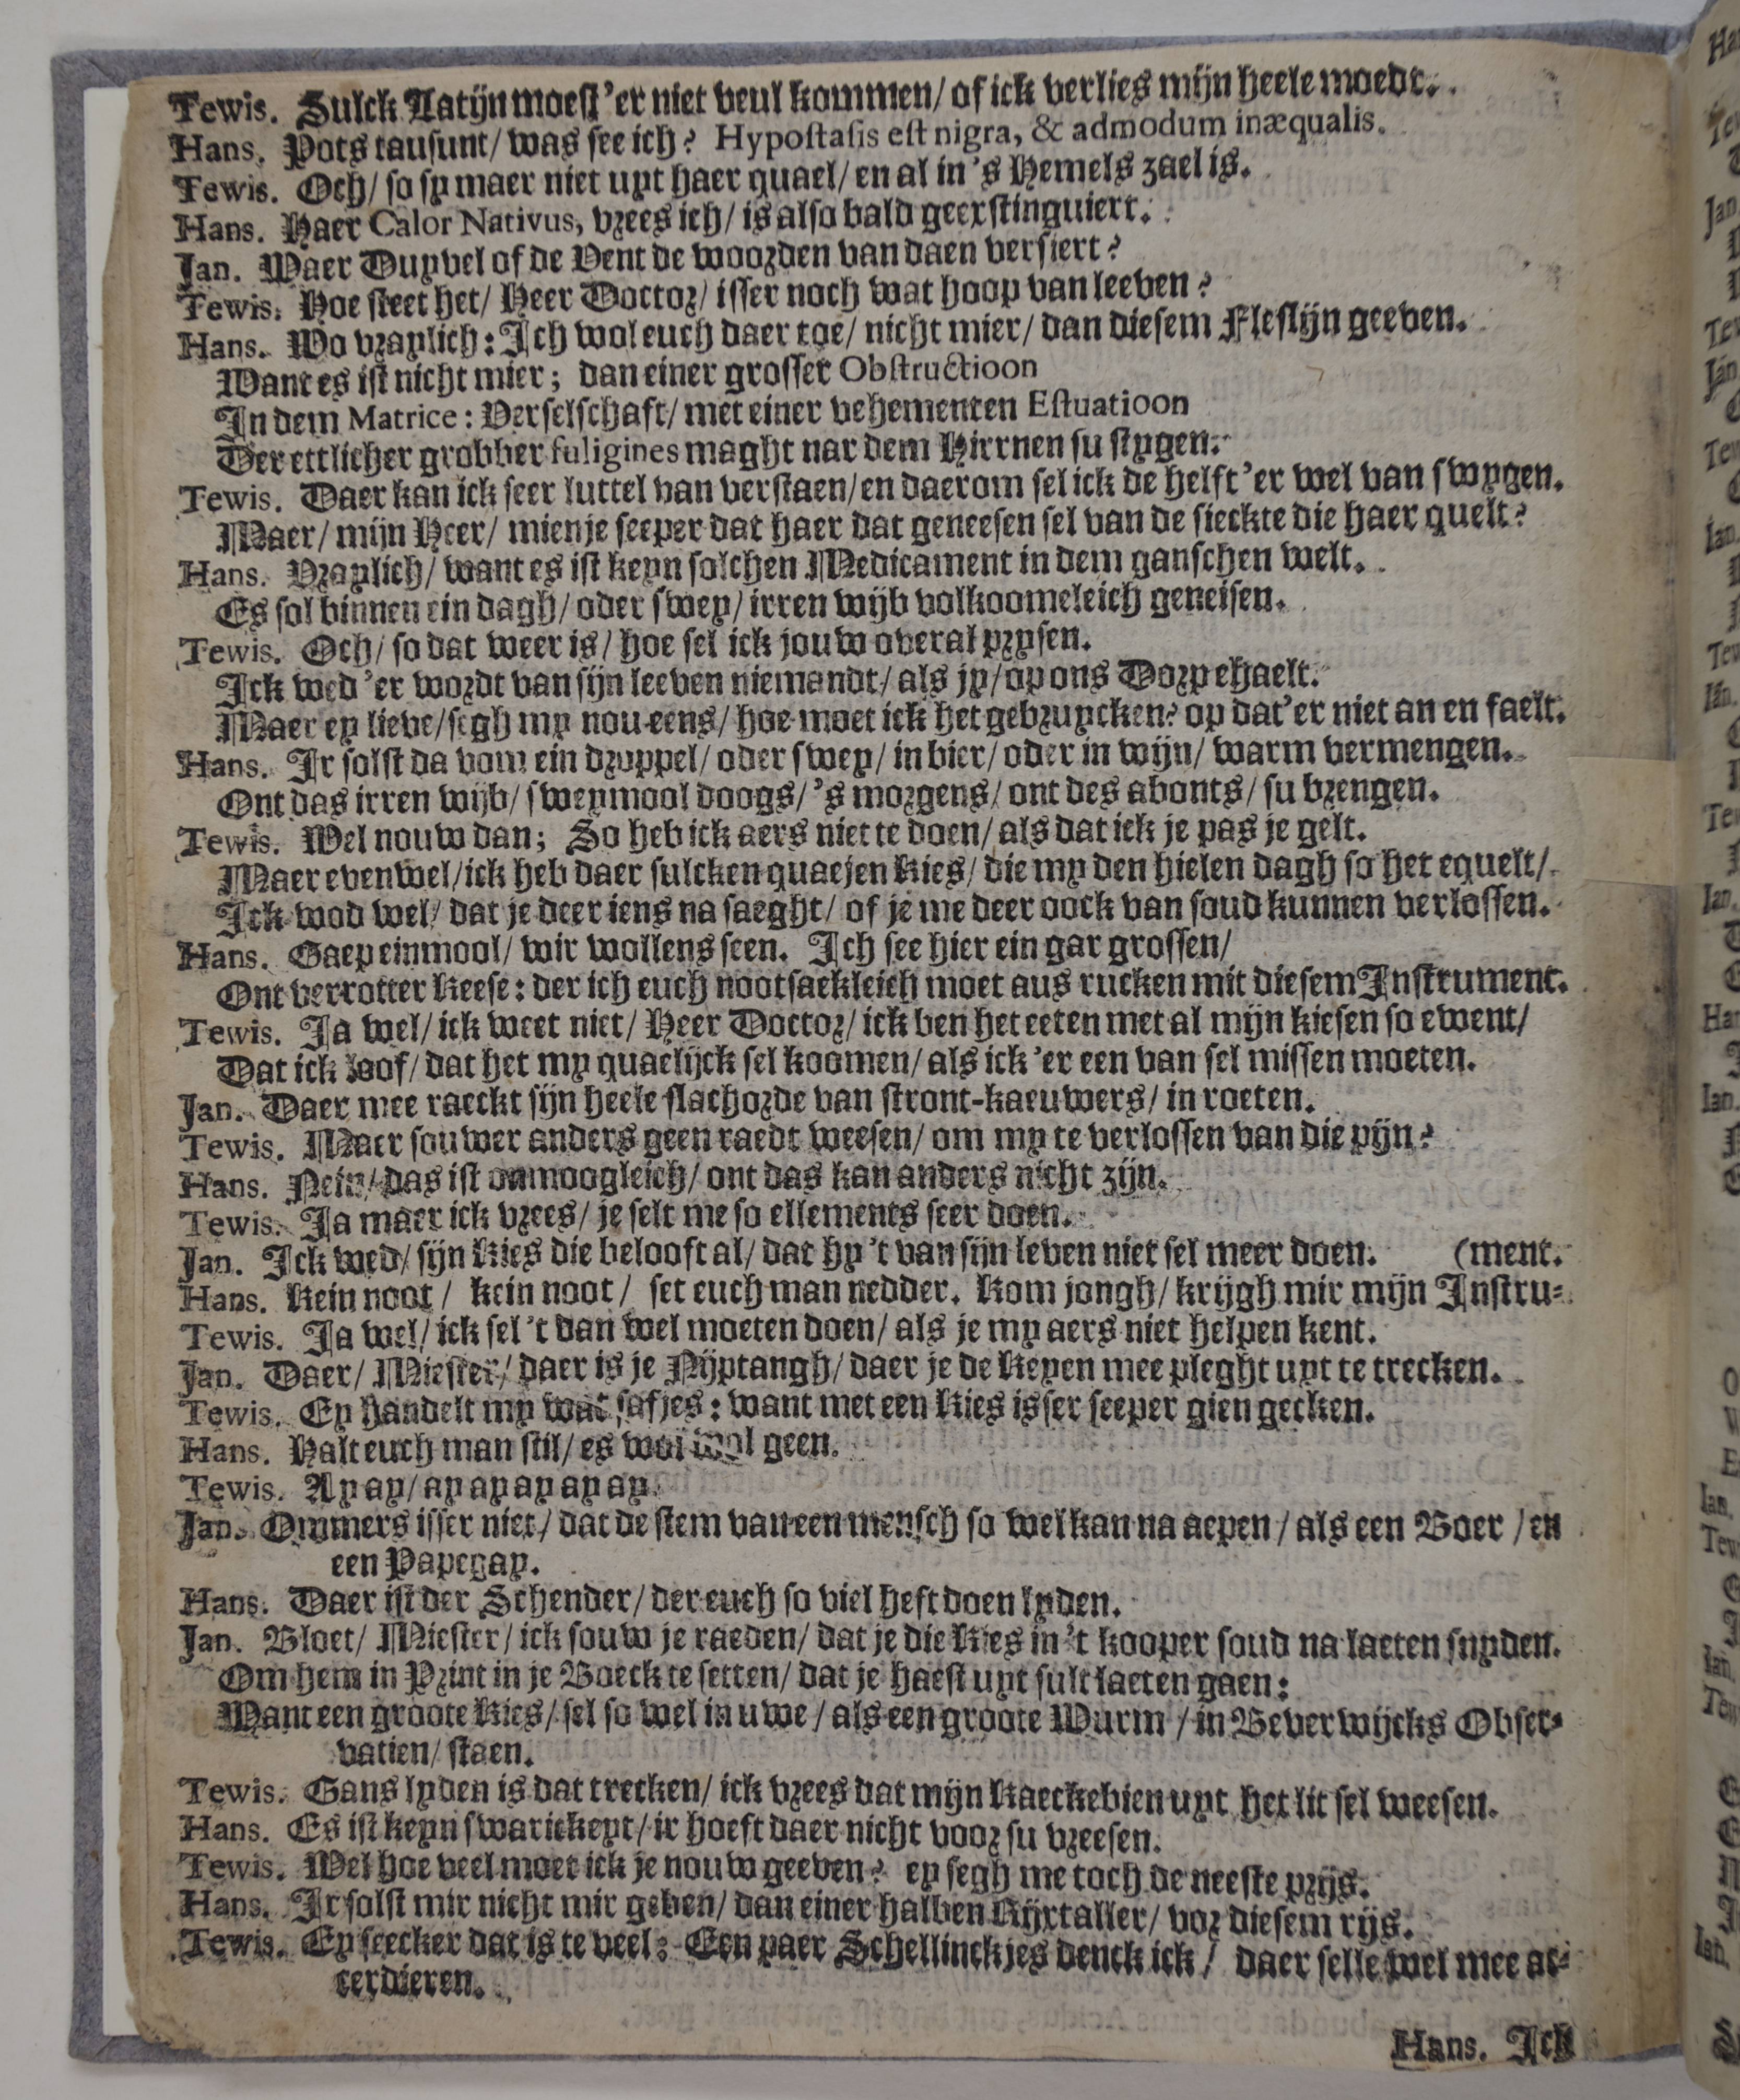 Tewis. Sulck Latijn moest 'er niet veul kommen/ of ick verlies mijn heele moedt.
Hans. Pots tausunt/ was see ich? Hypostasis est nigra, & admodum inæqualis.
Tewis. Och/ so sy maer niet uyt haer quael/ en al in 's Hemels zael is.
Hans. Haer Calor Nativus, vrees ich/ is also bald geexstinguiert.
Jan. Waer Duyvel of de Vent de woorden van daen versiert?
Tewis. Hoe steet het/ Heer Doctor/ isser noch wat hoop van leeven?
Hans. Wo vraylich: Ich wol euch daer toe/ nicht mier/ dan diesem Fleslijn geeven.
Want es ist nicht mier; dan einer grosser Obstructioon
In dem Matrice: Verselschaft/ met einer vehementen Estuatioon
Der ettlicher grobber fuligines maght nar dem Hirrnen su stygen.
Tewis. Daer kan ick seer luttel van verstaen/ en daerom sel ick de helft 'er wel van swygen.
Maer/ mijn Heer/ mien je seeper dat haer dat geneesen sel van de sieckte die haer quelt?
Hans. Vraylich/ want es ist keyn solchen Medicament in dem ganschen welt.
Es sol binnen ein dagh/ oder swey/ irren wijb volkoomeleich geneisen.
Tewis. Och/ so dat weer is/ hoe sel ick jouw overal prysen.
Ick wed 'er wordt van sijn leeven niemandt/ als jy/ op ons Dorp ehaelt.
Maer ey lieve/ segh my nou eens/ hoe moet ick het gebruycken? op dat 'er niet an en faelt.
Hans. Ir solst da vom ein droppel/ oder swey/ in bier/ oder in wijn/ warm vermengen.
Ont das irren wijb/ sweymool doogs/ 's morgens/ ont des abonts/ su brengen.
Tewis. Wel nouw dan; So heb ick aers niet te doen/ als dat ick je pas je gelt.
Maer evenwel/ ick heb daer sulcken quaejen Kies/ die my den hielen dagh so het equelt/
Ick wod wel/ dat je deer iens na saeght/ of je me deer oock van soud kunnen verlossen.
Hans. Gaep einmool/ wir wollens seen. Ich see hier ein gar grossen/
Ont verrotter Keese: der ich euch nootsaekleich moet aus rucken mit diesem Instrument.
Tewis. Ja wel/ ick weet niet/ Heer Doctor/ ick ben het eeten met al mijn kiesen so ewent/
Dat ick loof/ dat het my quaelijck sel koomen/ als ick 'er een van sel missen moeten.
Jan. Daer mee raeckt sijn heele slachorde van stront-kaeuwers/ in roeten.
Tewis. Maer souwer anders geen raedt weesen/ om my te verlossen van die pijn?
Hans. Nein/ das ist onmoogleich/ ont das kan anders nicht zijn.
Tewis. Ja maer ick vrees/ je selt me so ellements seer doen.
Jan. Ick wed/ sijn Kies die belooft al/ dat hy 't van sijn leven niet sel meer doen. (ment.
Hans. Kein noot/ kein noot/ set euch man nedder. Kom jongh/ krijgh mir mijn Instru-
Tewis. Ja wel/ ick sel 't dan wel moeten doen/ als je my aers niet helpen kent.
Jan. Daer/ Miester/ daer is je Nijptangh/ daer je de Keyen mee pleght uyt te trecken.
Tewis. Ey handelt my wat safjes: want met een Kies isser seeper gien gecken.
Hans. Halt euch man stil/ es wol wol geen.
Tewis. Ay ay/ ay ay ay ay ay.
Jan. Ommers isser niet/ dat de stem van een mensch so wel kan na aepen/ als een Boer/ en
een Papegay.
Hans. Daer ist der Schender/ der euch so viel heft doen lyden.
Jan. Bloet/ Miester/ ick souw je raeden/ dat je die Kies in 't kooper soud na laeten snyden.
Om hem in Print in je Boeck te setten/ dat je haest uyt sult laeten gaen:
Want een groote Kies/ sel so wel in uwe/ als een groote Wurm/ in Beverwijcks Obser-
vatien/ staen.
Tewis. Gans lyden is dat trecken/ ick vrees dat mijn Kaeckebien uyt het lit sel weesen.
Hans. Es ist keyn swarickeyt/ ir hoeft daer nicht voor su vreesen.
Tewis. Wel hoe veel moet ick je nouw geeven? ey segh me toch de neeste prijs.
Hans. Ir solst mir nicht mir geben/ dan einer halben Rijxtaller/ vor diesem rijs.
Tewis. Ey seecker dat is te veel: Een paer Schellinckjes denck ick/ daer selle wel mee ac-
cerdieren.
Hans. Ich